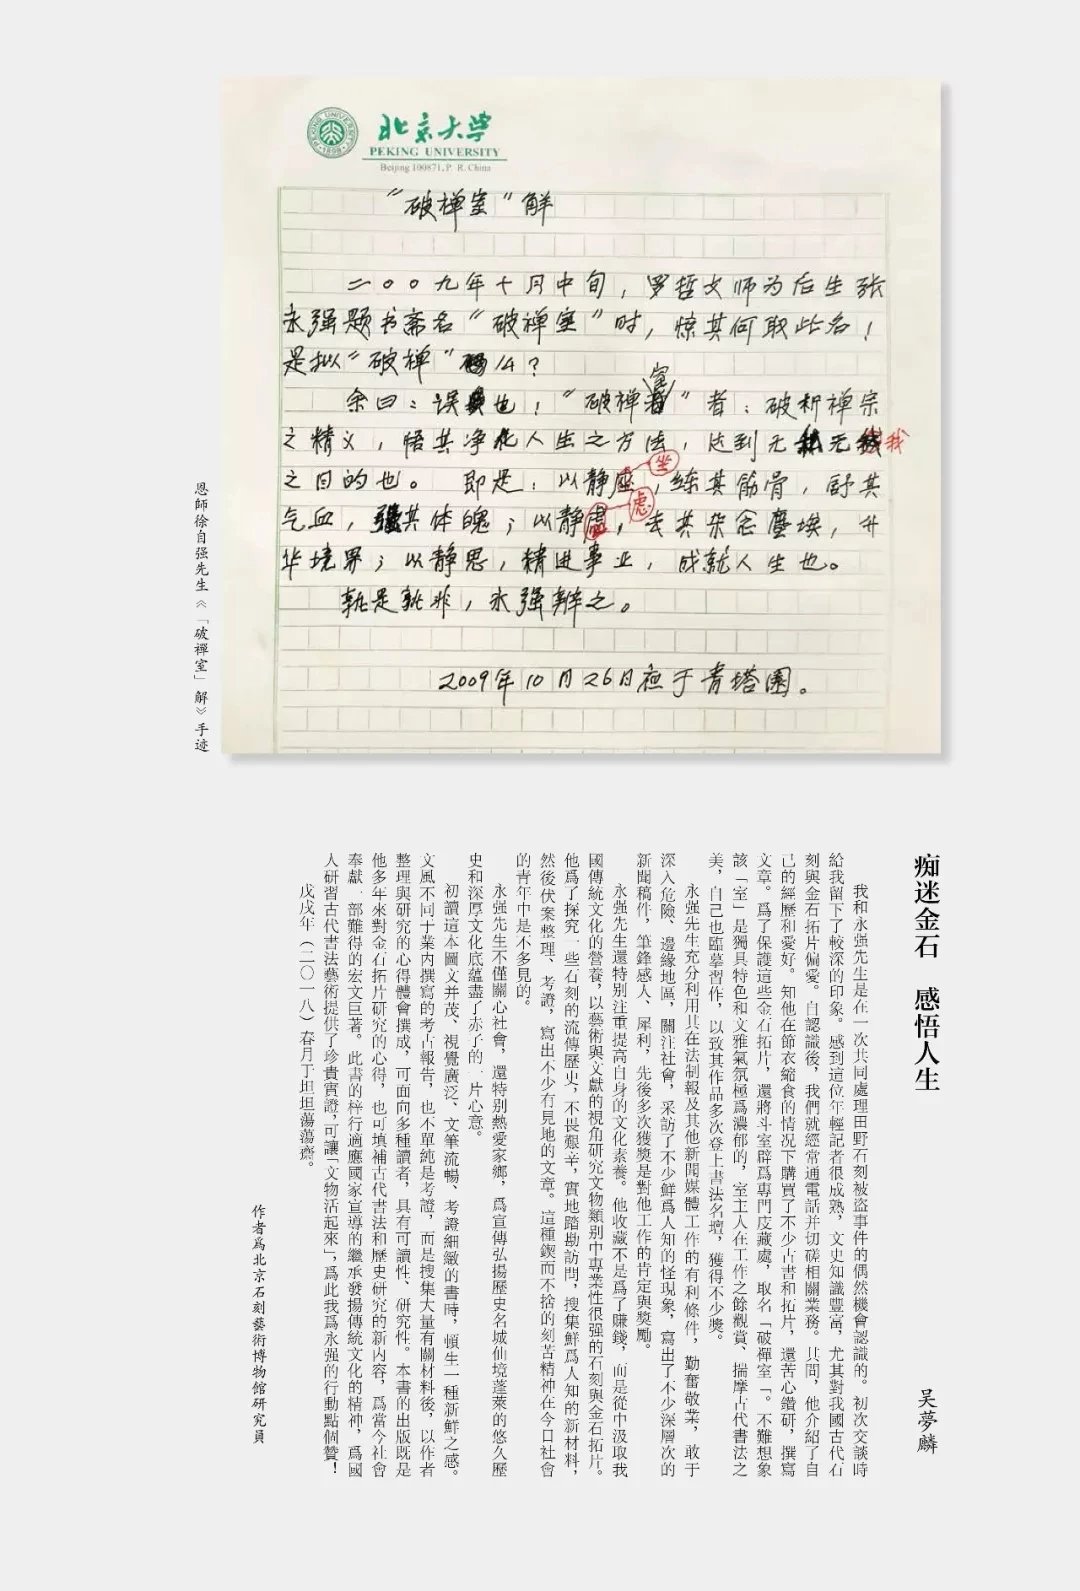 北京大学
PEKING UNIVERSITY
Beijing 100871, P. R. China
PEKING UNIVERSITY
1898
“破禅室”解
二〇〇九年十月中旬，罗哲文师为后生张
永强题书斋名“破禅室”时，惊其何取此名！
是拟“破禅”么？
余曰：误也！“破禅室”者：破析禅宗
之精义，悟其净化人生之方法，达到无私无我
之目的也。即是：以静坐，练其筋骨，舒其
气血，强其体魄；以静虑，去其杂念塵埃，升
华境界；以静思，精进事业，成就人生也。
孰是孰非，永强辨之。
2009年10月26日夜于青塔园。
恩師徐自强先生《「破禪室」解》手迹
痴迷金石　感悟人生
吴夢麟
我和永强先生是在一次共同處理田野石刻被盜事件的偶然機會認識的。初次交談時
給我留下了較深的印象。感到這位年輕記者很成熟，文史知識豐富，尤其對我國古代石
刻與金石拓片偏愛。自認識後，我們就經常通電話并切磋相關業務。其間，他介紹了自
己的經歷和愛好。知他在節衣縮食的情况下購買了不少古書和拓片，還苦心鑽研，撰寫
文章。爲了保護這些金石拓片，還將斗室辟爲專門庋藏處，取名「破禪室「。不難想象
該「室」是獨具特色和文雅氣氛極爲濃郁的，室主人在工作之餘觀賞、揣摩古代書法之
美，自己也臨摹習作，以致其作品多次登上書法名壇，獲得不少獎。
永强先生充分利用其在法制報及其他新聞媒體工作的有利條件，勤奮敬業，敢于
深入危險、邊緣地區，關注社會，采訪了不少鮮爲人知的怪現象，寫出了不少深層次的
新聞稿件，筆鋒感人、犀利，先後多次獲獎是對他工作的肯定與獎勵。
永强先生還特别注重提高自身的文化素養。他收藏不是爲了賺錢，而是從中汲取我
國傳統文化的營養，以藝術與文獻的視角研究文物類别中專業性很强的石刻與金石拓片。
他爲了探究一些石刻的流傳歷史，不畏艱辛，實地踏勘訪問，搜集鮮爲人知的新材料，
然後伏案整理、考證，寫出不少有見地的文章。這種鍥而不捨的刻苦精神在今日社會
的青年中是不多見的。
永强先生不僅關心社會，還特别熱愛家鄉，爲宣傳弘揚歷史名城仙境蓬萊的悠久歷
史和深厚文化底藴盡了赤子的一片心意。
初讀這本圖文并茂、視覺廣泛、文筆流暢、考證細緻的書時，頓生一種新鮮之感。
文風不同于業内撰寫的考古報告，也不單純是考證，而是搜集大量有關材料後，以作者
整理與研究的心得體會撰成，可面向多種讀者，具有可讀性、研究性。本書的出版既是
他多年來對金石拓片研究的心得，也可填補古代書法和歷史研究的新内容，爲當今社會
奉獻一部難得的宏文巨著。此書的梓行適應國家宣導的繼承發揚傳統文化的精神，爲國
人研習古代書法藝術提供了珍貴實證，可讓「文物活起來」，爲此我爲永强的行動點個贊！
戊戌年（二〇一八）春月于坦坦蕩蕩齋。
作者爲北京石刻藝術博物馆研究員